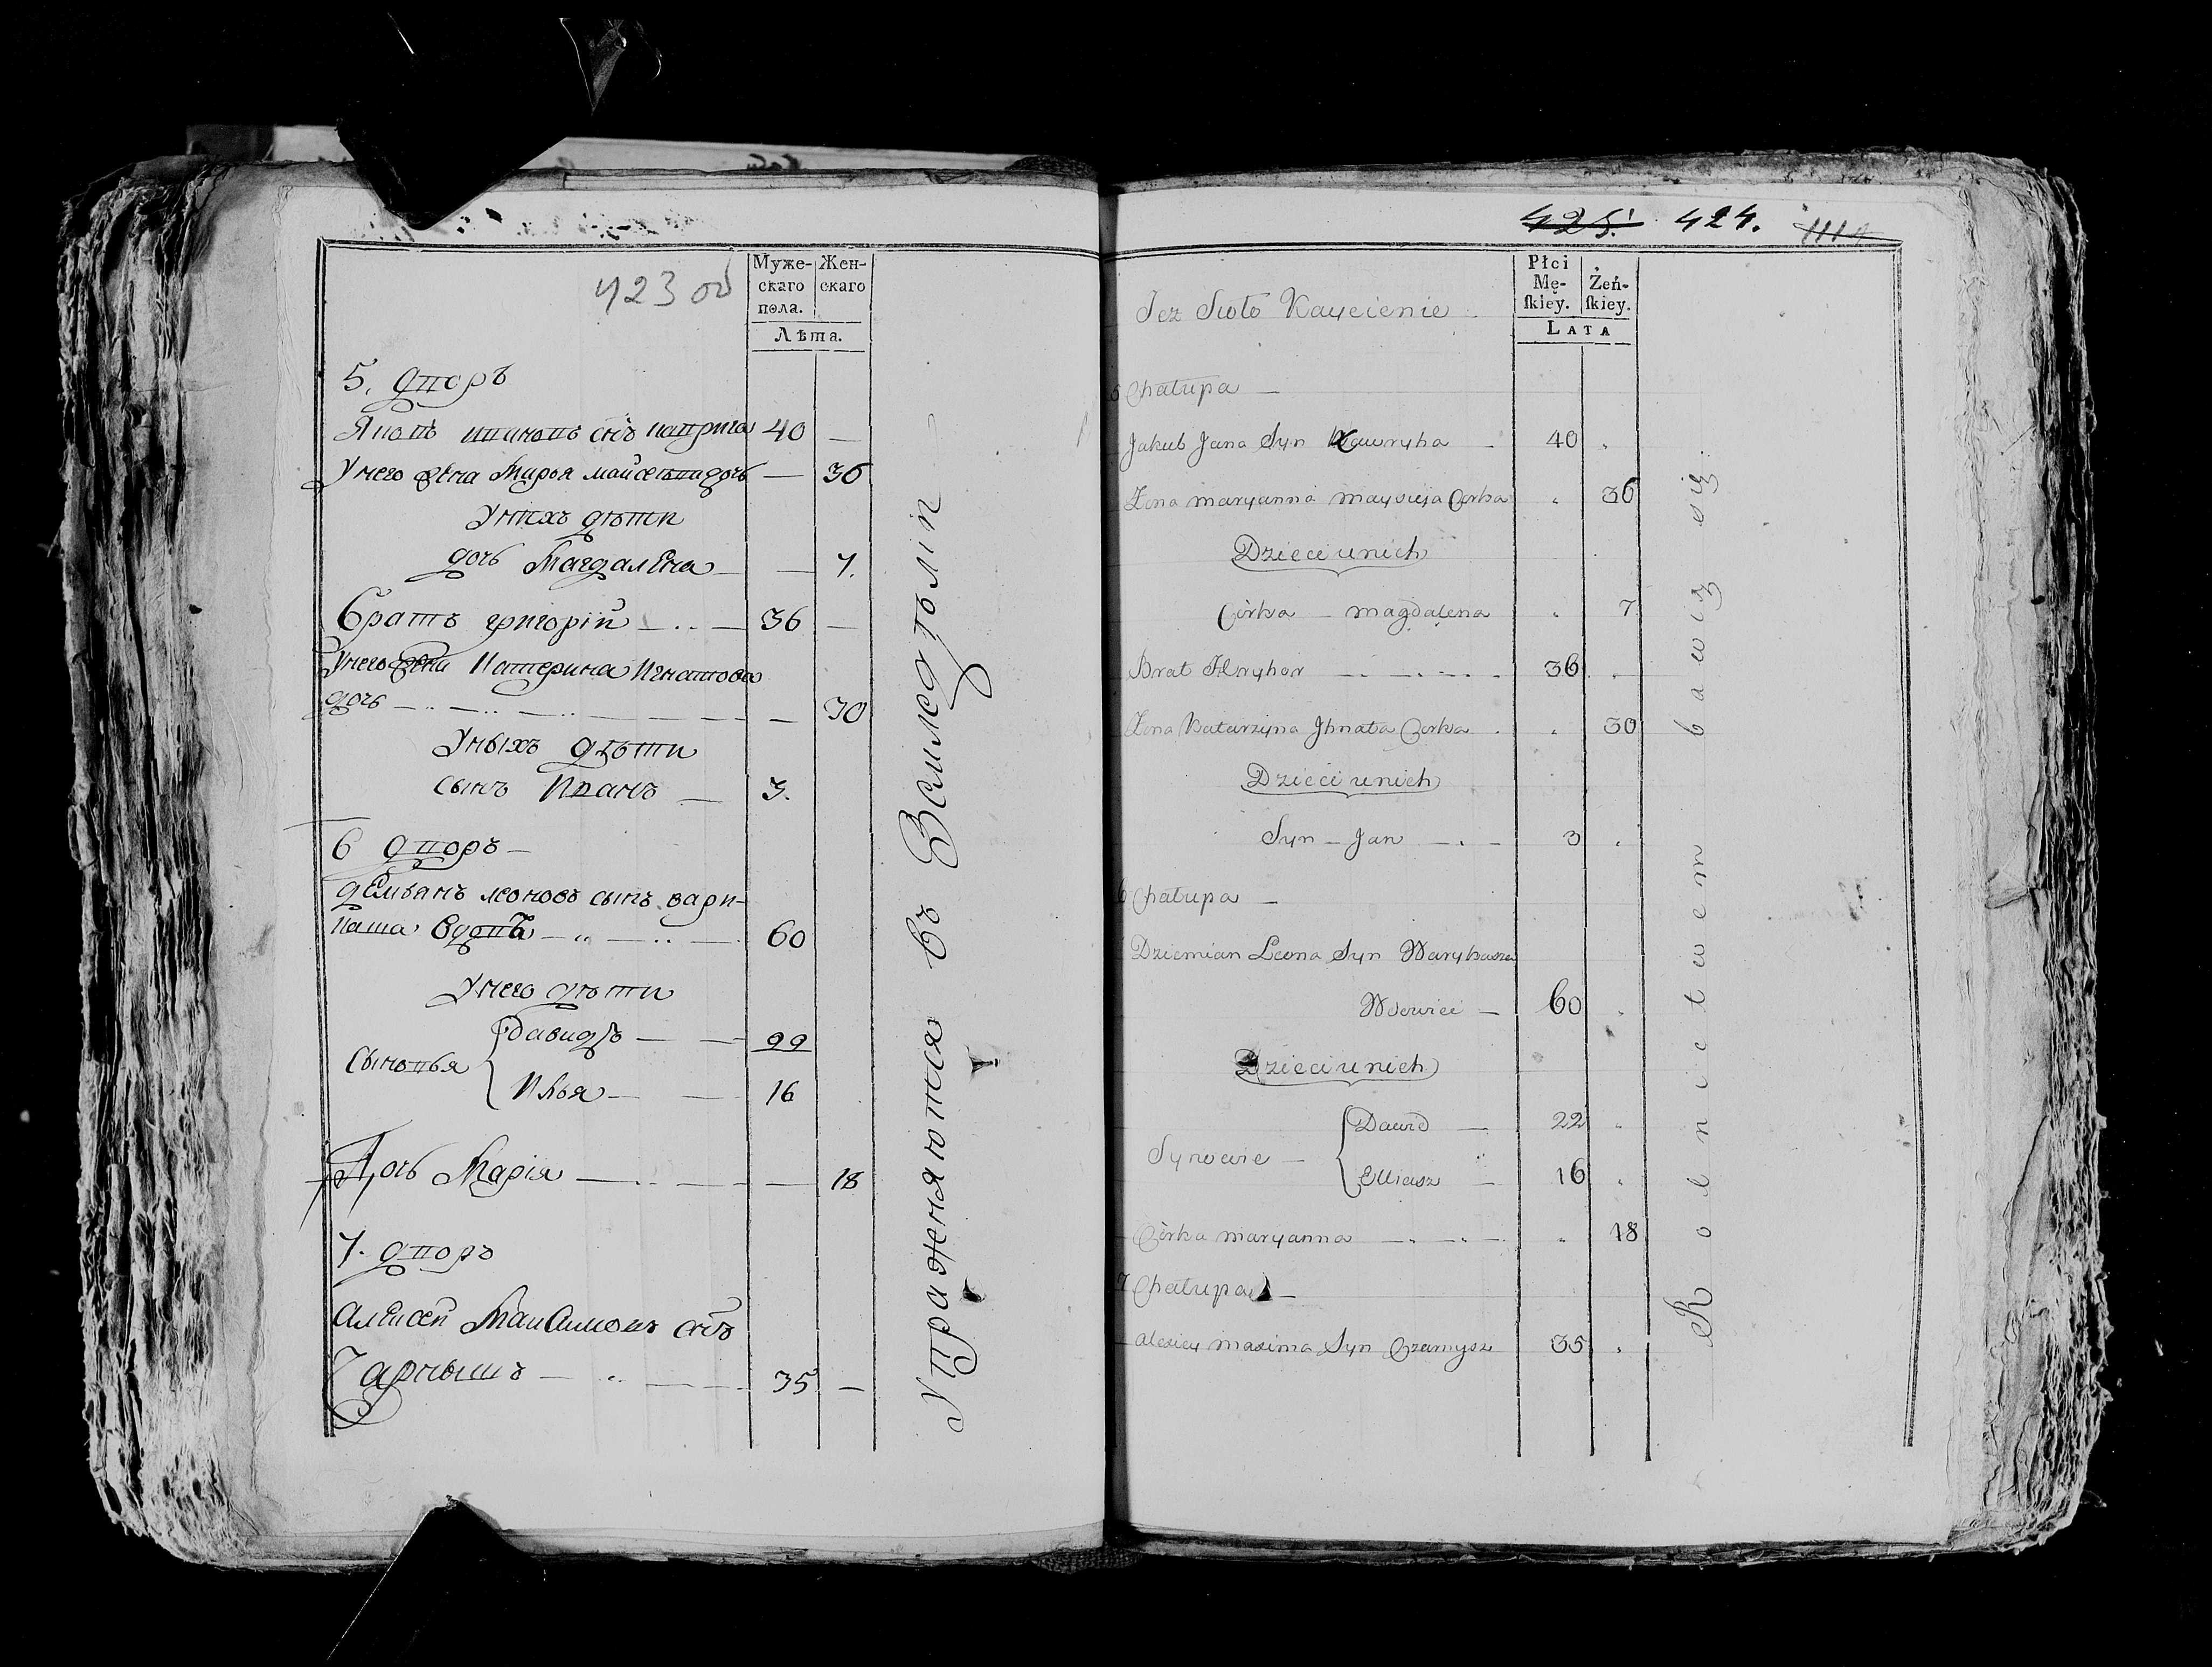 423 об
Муже-
скаго
пола.
Жен-
скаго
Лѣта.
5. дворъ
Яковъ ивановъ снъ каврига 40 —
Унего жена Марья майсеева дочь — 36
Унихъ дѣти
дочь Магдалена — 7.
братъ григорій — 36 —
Унего жена Катерина Игнатова
дочь — 30
Уныхъ дѣти
сынъ Иванъ — 3.
6 дворъ —
демьянъ леоновъ сынъ вари-
каша вдовъ — 60
Унего дѣти
Сыновья
Давидъ — 22
Илья — 16
Дочь Марія — 18
7. дворъ
алексей Максимовъ снъ
Чарнышъ — 35 —
Упражняются въ Земледѣліи
425. 424. 1114
Też Sioło Kaycienie
Płci
Mę-
ſkiey.
Żeń-
ſkiey.
LATA
5 Chałupa —
Jakub Jana Syn Kawryha — 40
Żona maryanna maysieja Corka 36
Dzieci unich
Córka — magdalena 7
Brat Hryhor — 36
Żona Katarzyna Jhnata Corka 30
Dzieci unich
Syn — Jan — 3
6 Chałupa —
Dziemian Leona Syn Warykasza
Wdowiec — 60
Dzieci unich
Synowie —
Dawid — 22
Elliasz — 16
Córka maryanna — 18
7 Chałupa —
alexiey maxima Syn Czarnysz 35
Rolnictwem bawią się.